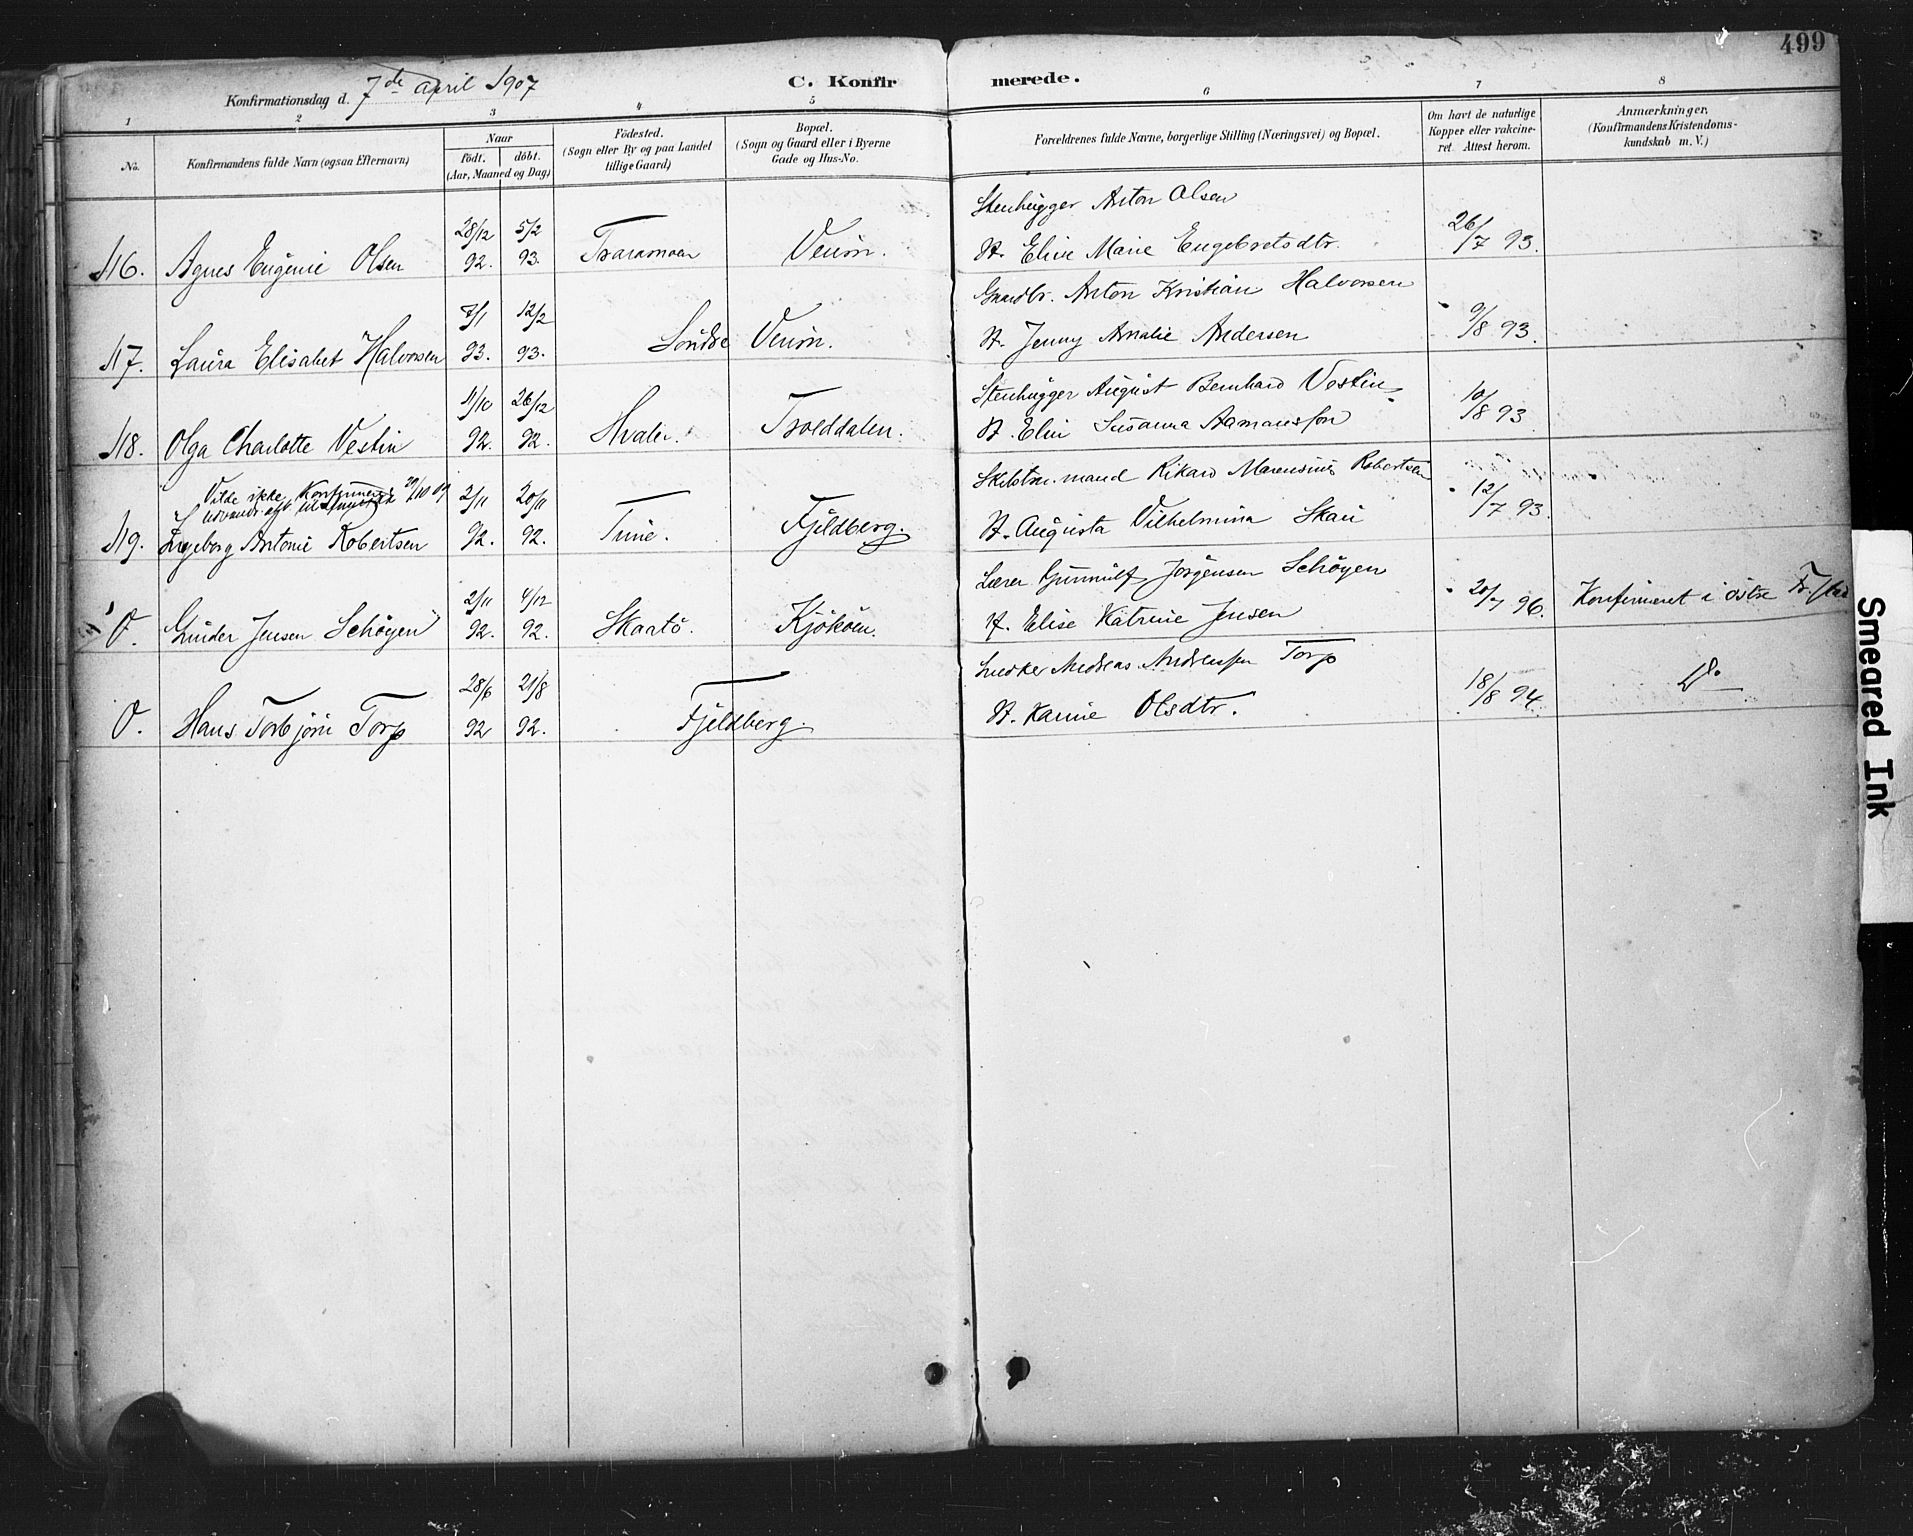 499
Konfirmationsdag d. 7de april 1907 C. Konfir merede.
1 2 3 4 5 6 7 8
No. Konfirmandens fulde Navn (ogsaa Efternavn) Naar födt. döbt. (Aar, Maaned og Dag) Födested. (Sogn eller By og paa Landet tillige Gaard) Bopæl. (Sogn og Gaard eller i Byerne Gade og Hus-No. Forældrenes fulde Navne, borgerlige Stilling (Næringsvei) og Bopæl. Om havt de naturlige Kopper eller vakcineret. Attest herom. Anmærkninger. (Konfirmandens Kristendomskundskab m. V.)
Stenhugger Anton Olsen
116. Agnes Eugenie Olsen 28/12 92. 5/2 93. Veuön. H. Elise Marie Engebretsdtr. 26/7 93.
Gaardbr. Anton Kristian Halvorsen
117. Laura Elisabet Halvorsen 7/1 93. 12/2 93. Söndre Veuön. H. Jenny Amalie Andersen 9/8 93.
Stenhugger August Bernhard Vestin
118. Olga Charlotte Vestin 11/10 92. 26/12 92. Hvaler. Trolddalen. H. Elin Susanna Aamansson 10/8 93
Vilde ikke Konfirmeres 29/10 09
Skibstm.mand Rikard Marensius Robertsen
119. Ingeborg Antonie Robertsen 2/11 92. 20/11 92. Tune. Fjeldberg. H. Augusta Vilhelmina Skau 12/7 93.
Lærer Gunnulf Jörgensen Schöyen
O. Gunder Jensen Schöyen 2/11 92. 4/12 92. Skaatö. Kjököen. H. Elise Katrine Jensen 20/7 96. Konfirmeret i östre Fr.stad
Snedker Andreas Andreassen Torp
O. Hans Torbjörn Torp 28/6 92 21/8 92. Fjeldberg. H. Karine Olsdtr. 18/8 94. Do.
Smeared Ink